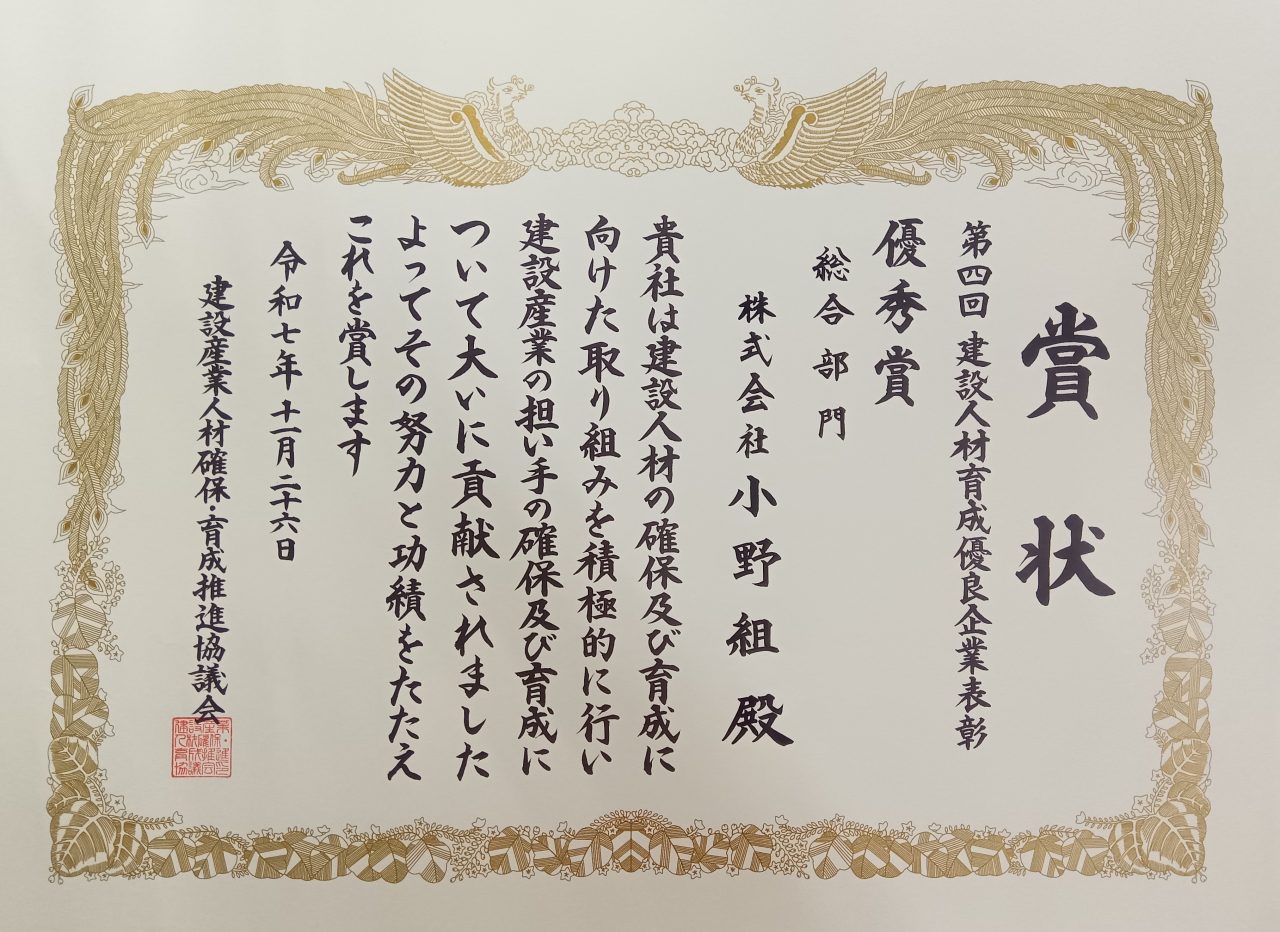 賞状
第四回 建設人材育成優良企業表彰
優秀賞
総合部門
株式会社 小野組 殿
貴社は建設人材の確保及び育成に
向けた取り組みを積極的に行い
建設産業の担い手の確保及び育成に
ついて大いに貢献されました
よってその努力と功績をたたえ
これを賞します
令和七年十一月二十六日
建設産業人材確保・育成推進協議会